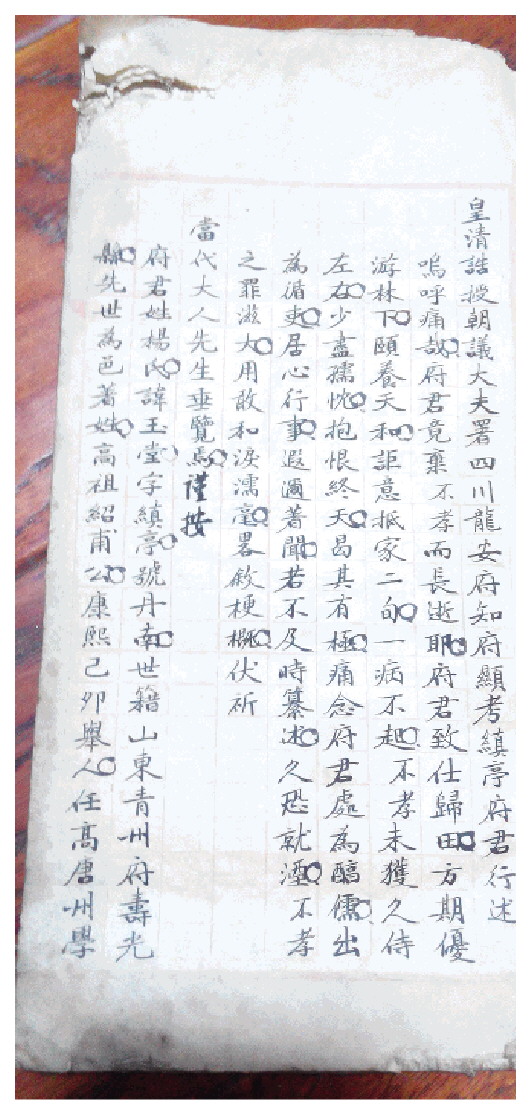 皇清誥授朝議大夫署四川龍安府知府顯考縝亭府君行述
嗚呼痛哉府君竟棄不孝而長逝耶府君致仕歸田方期優
游林下頤養天和詎意抵家二旬一病不起不孝未獲久侍
左右少盡孺忱抱恨終天曷其有極痛念府君處為醇儒出
為循吏居心行事遐邇著聞若不及時纂述久恐就湮不孝
之罪滋大用敢和淚濡毫畧敘梗概伏祈
當代大人先生垂覽焉謹按
府君姓楊氏諱玉堂字縝亭號丹南世籍山東青州府壽光
縣先世為邑著姓高祖紹甫公康熙己卯舉人任高唐州學